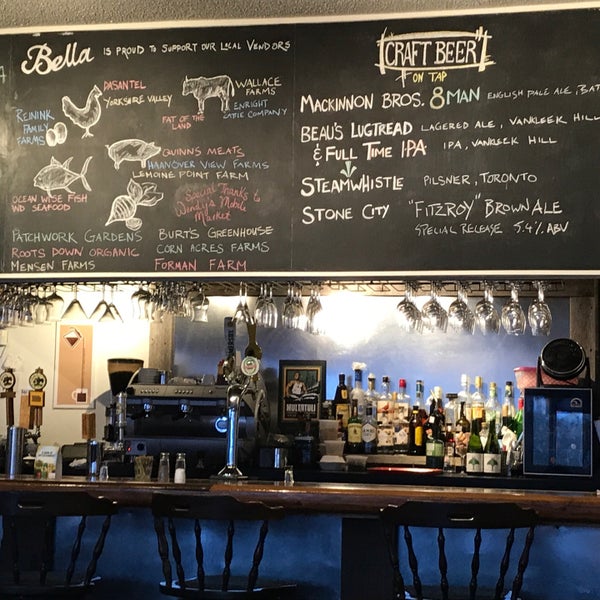 Bella IS PROUD TO SUPPORT OUR LOCAL VENDORS
DASANTEL
YORKSHIRE VALLEY
WALLACE
FARMS
ENRIGHT
CATTLE COMPANY
REININK
FAMILY
FARMS
FAT OF THE
LAND
QUINNS MEATS
HAANOVER VIEW FARMS
LEMOINE POINT FARM
OCEAN WISE FISH
AND SEAFOOD
Special Thanks to
Wendy's Mobile
Market
PATCHWORK GARDENS
ROOTS DOWN ORGANIC
MENSEN FARMS
BURT'S GREENHOUSE
CORN ACRES FARMS
FORMAN FARM
"CRAFT BEER"
ON TAP
MACKINNON BROS. 8 MAN ENGLISH PALE ALE, BAT
BEAU'S LUGTREAD LAGERED ALE, VANKLEEK HILL
& FULL TIME IPA IPA, VANKLEEK HILL
STEAMWHISTLE PILSNER, TORONTO
STONE CITY "FITZROY" BROWN ALE
SPECIAL RELEASE 5.4% ABV